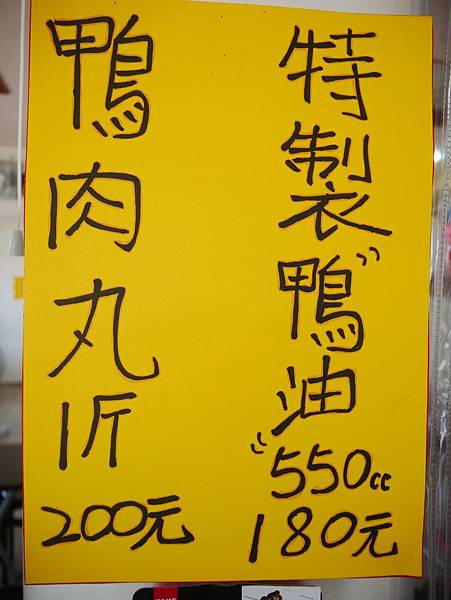 特製鴨油
550cc
180元
鴨肉丸
1斤
200元